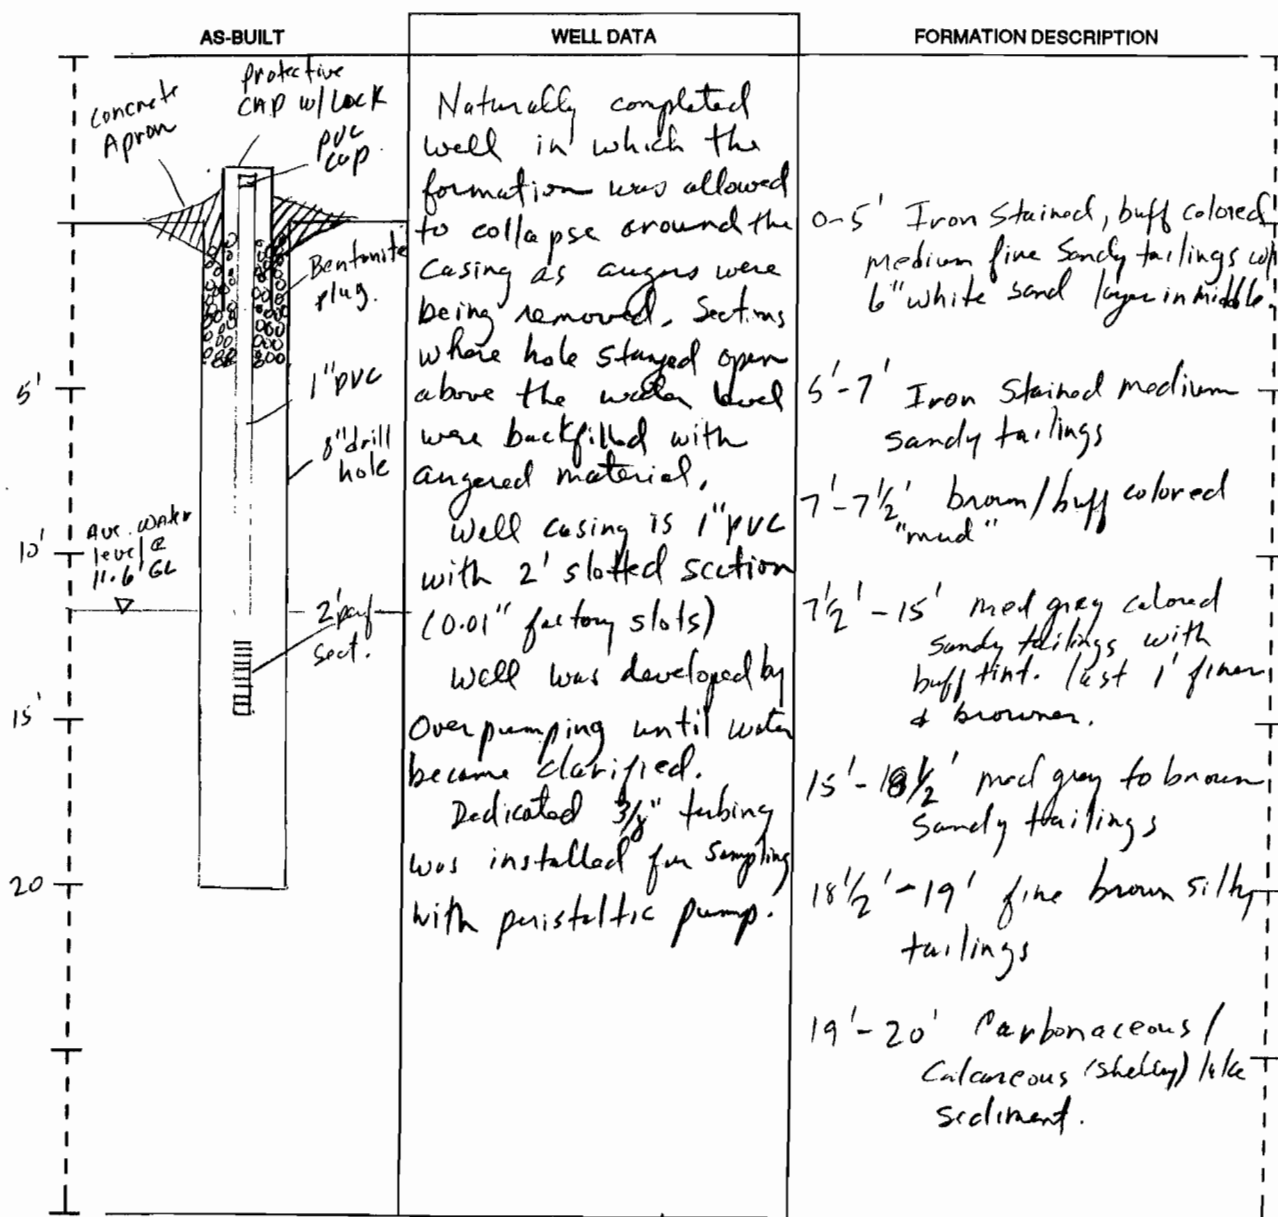 AS-BUILT
WELL DATA
FORMATION DESCRIPTION
Concrete
Apron
protective
CAP w/ Lock
pvc
cap.
Bentonite
plug.
1" pvc
8" drill
hole
Ave. water
level @
11.6' GL
2' perf
sect.
5'
10'
15'
20
Naturally completed
well in which the
formation was allowed
to collapse around the
casing as augers were
being removed. Sections
where hole stayed open
above the water level
were backfilled with
augered material.
Well casing is 1" pvc
with 2' slotted section
(0.01" factory slots)
Well was developed by
Overpumping until water
became clarified.
Dedicated 3/8" tubing
was installed for sampling
with peristaltic pump.
0-5' Iron Stained, buff colored
medium fine Sandy tailings w/
6" white sand layer in middle.
5'-7' Iron Stained medium
sandy tailings
7'-7 1/2' brown/buff colored
"mud"
7 1/2'-15' med gray colored
sandy tailings with
buff tint. last 1' finer
& browner.
15'-18 1/2' med gray to brown
Sandy tailings
18 1/2'-19' fine brown silty
tailings
19'-20' Carbonaceous/
Calcareous (shelley) like
sediment.